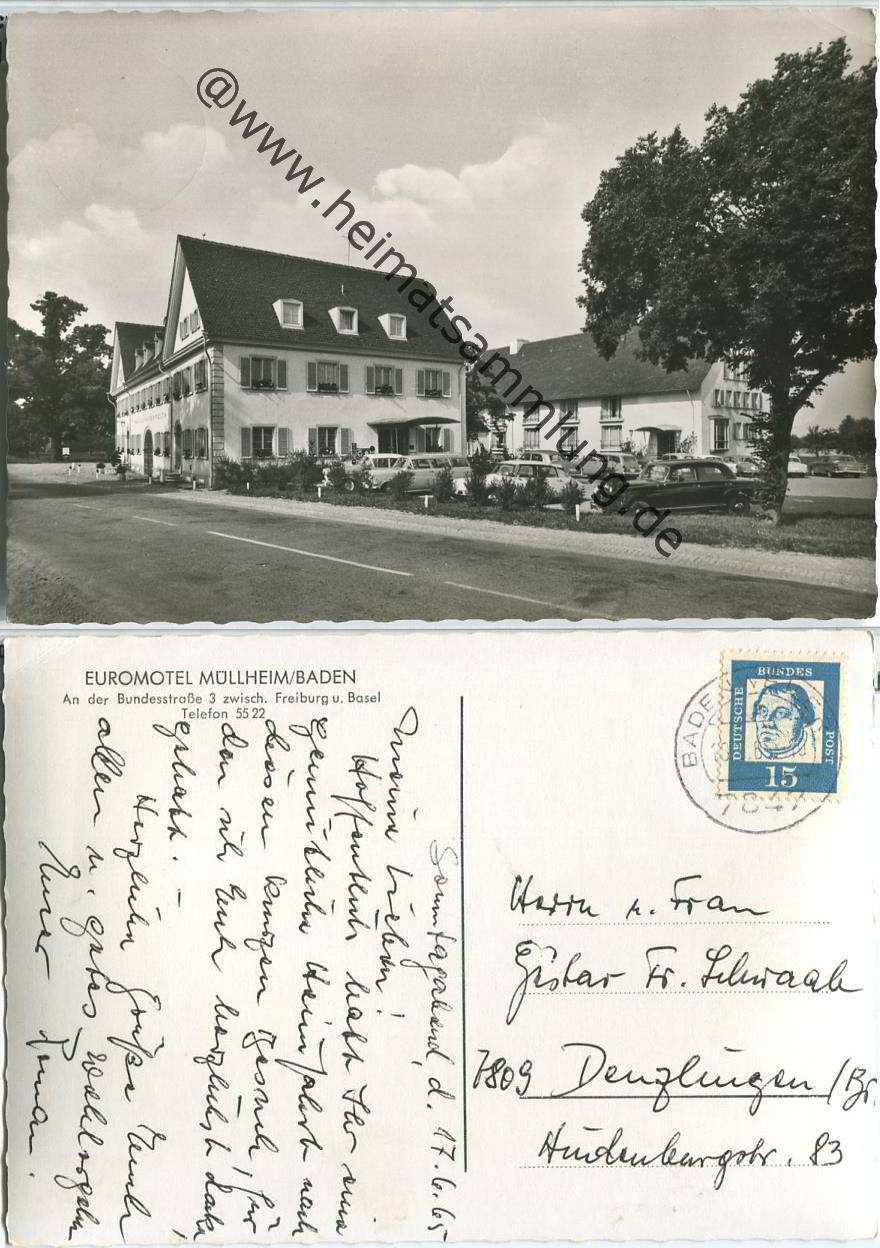 @www.heimatsammlung.de
EUROMOTEL MÜLLHEIM/BADEN
An der Bundesstraße 3 zwisch. Freiburg u. Basel
Telefon 55 22
DEUTSCHE
BUNDES
POST
15
BADE
7847
Sonntagabend, d. 17.6.65
Meine Lieben!
Hoffentlich habt Ihr eine
gemütliche Heimfahrt nach
diesem kurzen Besuch, für
den ich Euch herzlichst danke,
gehabt. –
Herzliche Grüße Euch
allen u. gutes Wohlergehn
Eurer
Herrn u. Frau
Gustav Fr. Schwaab
7809 Denzlingen /Br.
Hindenburgstr. 83